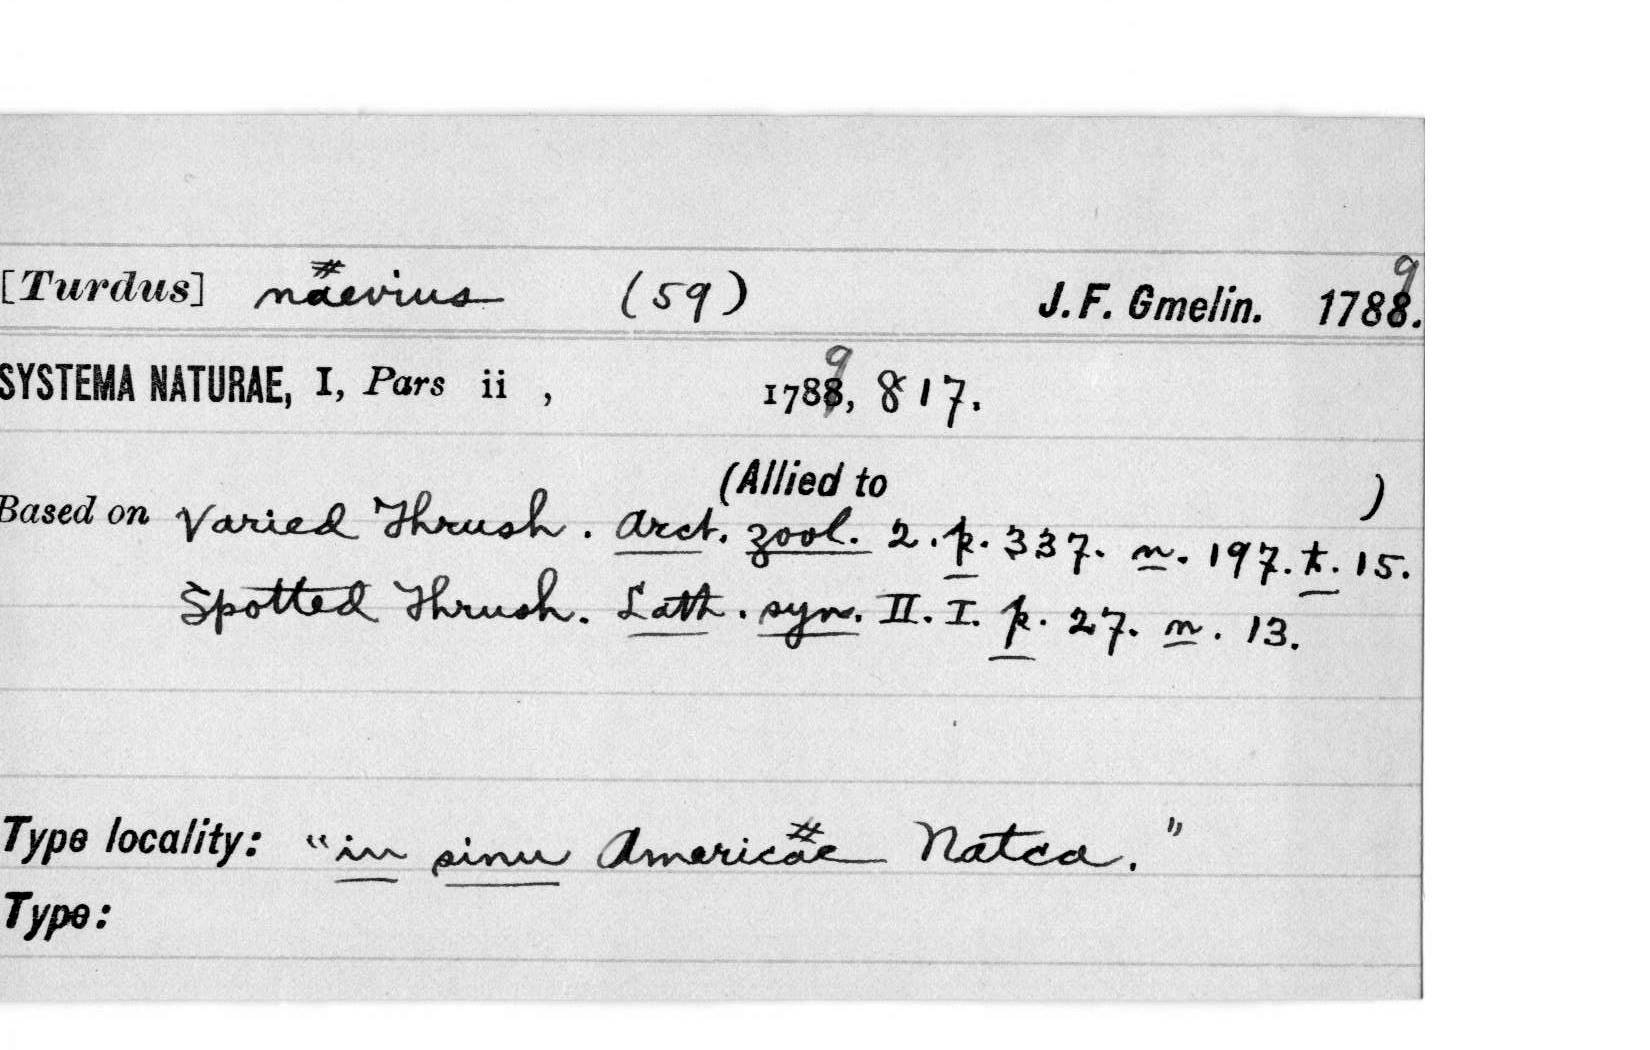 [Turdus] naevius (59) J. F. Gmelin. 1789.
SYSTEMA NATURAE, I, Pars ii , 1789, 817.
(Allied to )
Based on Varied Thrush. Arct. zool. 2. p. 337. n. 197. t. 15.
Spotted Thrush. Lath. syn. II. I. p. 27. n. 13.
Type locality: "in sinu Americae Natca."
Type: